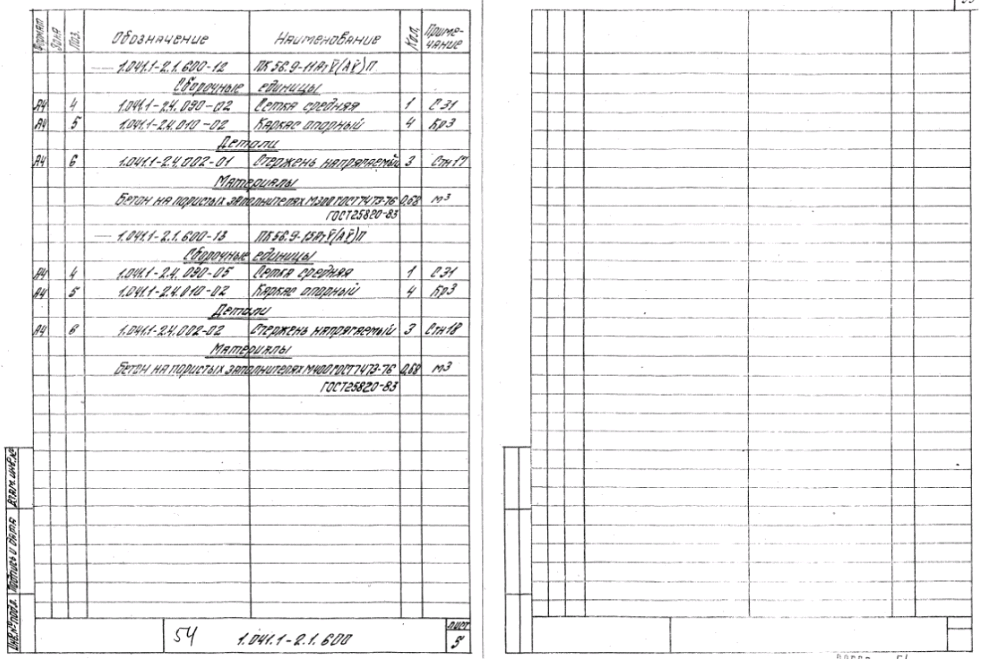 Формат Зона Поз. Обозначение Наименование Кол. Приме-
чание
1.041.1-2.1.600-12 ПК 56.9-11АтV(АV)П
Сборочные единицы
А4 4 1.041.1-2.4.090-02 Сетка средняя 1 СЭ1
А4 5 1.041.1-2.4.010-02 Каркас опорный 4 Кр3
Детали
А4 6 1.041.1-2.4.002-01 Стержень напрягаемый 3 Стн17
Материалы
Бетон на пористых заполнителях М300 ГОСТ7473-76 0,68 м³
ГОСТ25820-83
1.041.1-2.1.600-13 ПК 56.9-15АтV(АV)П
Сборочные единицы
А4 4 1.041.1-2.4.090-05 Сетка средняя 1 СЭ1
А4 5 1.041.1-2.4.010-02 Каркас опорный 4 Кр3
Детали
А4 6 1.041.1-2.4.002-02 Стержень напрягаемый 3 Стн18
Материалы
Бетон на пористых заполнителях М400 ГОСТ7473-76 0,68 м3
ГОСТ25820-83
Взам. инв. №
Подпись и дата
Инв. № подл.
54 1.041.1-2.1.600
Лист
5